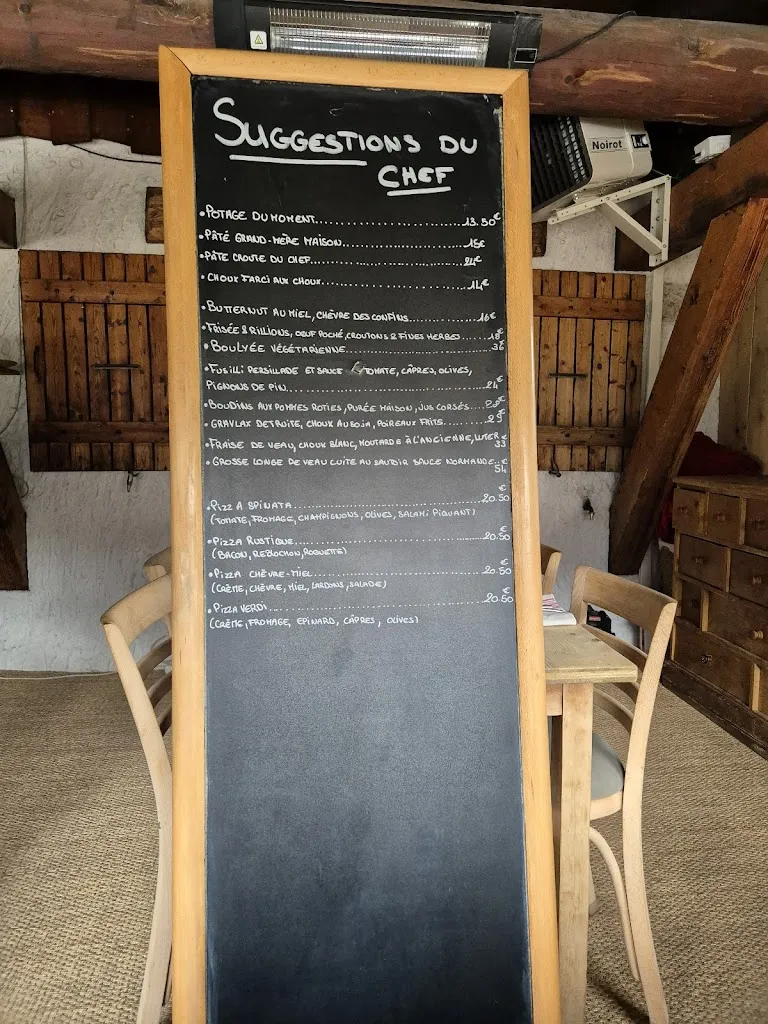 Noirot
SUGGESTIONS DU
CHEF
•POTAGE DU MOMENT.......13.50€
•PÂTÉ GRAND-MÈRE MAISON.......15€
•PÂTE CROUTE DU CHEF.......21€
•CHOUX FARCI AUX CHOUX.......14€
•BUTTERNUT AU MIEL, CHÈVRE DES CONFINS.......16€
•FRISÉE & RILLIONS, OEUF POCHÉ, CROUTONS & FINES HERBES.......18€
•BOULYÉE VÉGÉTARIENNE.......
•FUSILLI PERSILLADE ET SAUCE TOMATE, CÂPRES, OLIVES,
PIGNONS DE PIN.......24€
•BOUDINS AUX POMMES ROTIES, PURÉE MAISON, JUS CORSÉS.......
•GRAVLAX DE TRUITE, CHOUX AU SOJA, POIREAUX FRITS.......29€
•FRAISE DE VEAU, CHOUX BLANC, MOUTARDE À L'ANCIENNE, 33€
•GROSSE LONGE DE VEAU CUITE AU SAUTOIR SAUCE NORMANDE...54€
•PIZZA SPINATA.......20.50€
(TOMATE, FROMAGE, CHAMPIGNONS, OLIVES, SALAMI PIQUANT)
•PIZZA RUSTIQUE.......20.50€
(BACON, REBLOCHON, ROQUETTE)
•PIZZA CHÈVRE-MIEL.......20.50€
(CRÈME, CHÈVRE, MIEL, LARDONS, SALADE)
•PIZZA VERDI.......20.50€
(CRÈME, FROMAGE, EPINARD, CÂPRES, OLIVES)